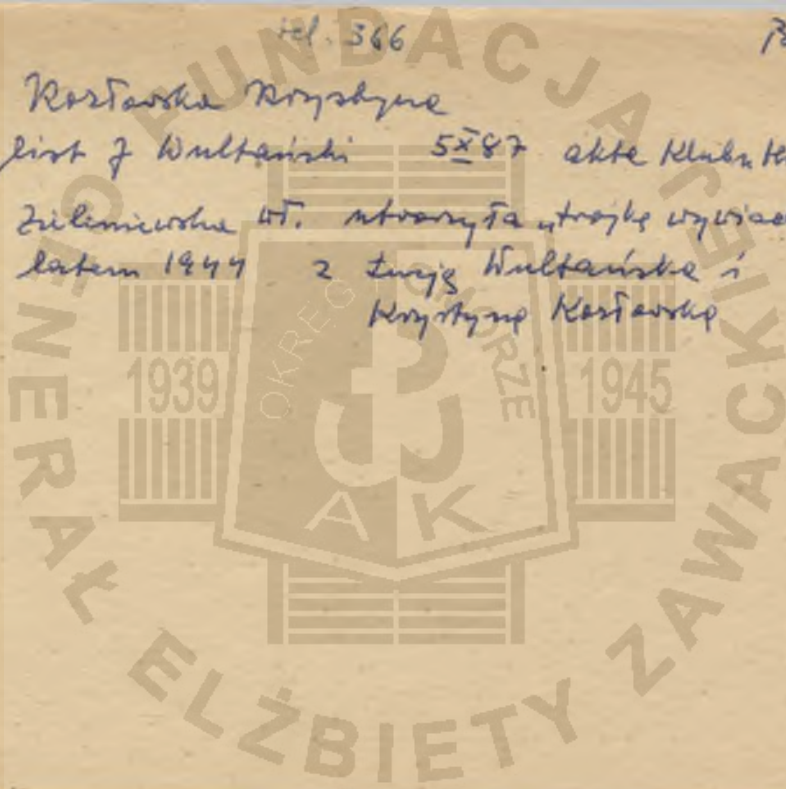 tel. 366
Kozłowska Krystyna
list J Wultański 5 X 87 akta Klubu
Zieleniewska Wł. utworzyła „trójkę
latem 1944 z Łucją Wultańską i
Krystyną Kozłowską
FUNDACJA GENERAŁ ELŻBIETY ZAWACKIEJ
OKRĘG POMORZE
1939 1945
AK